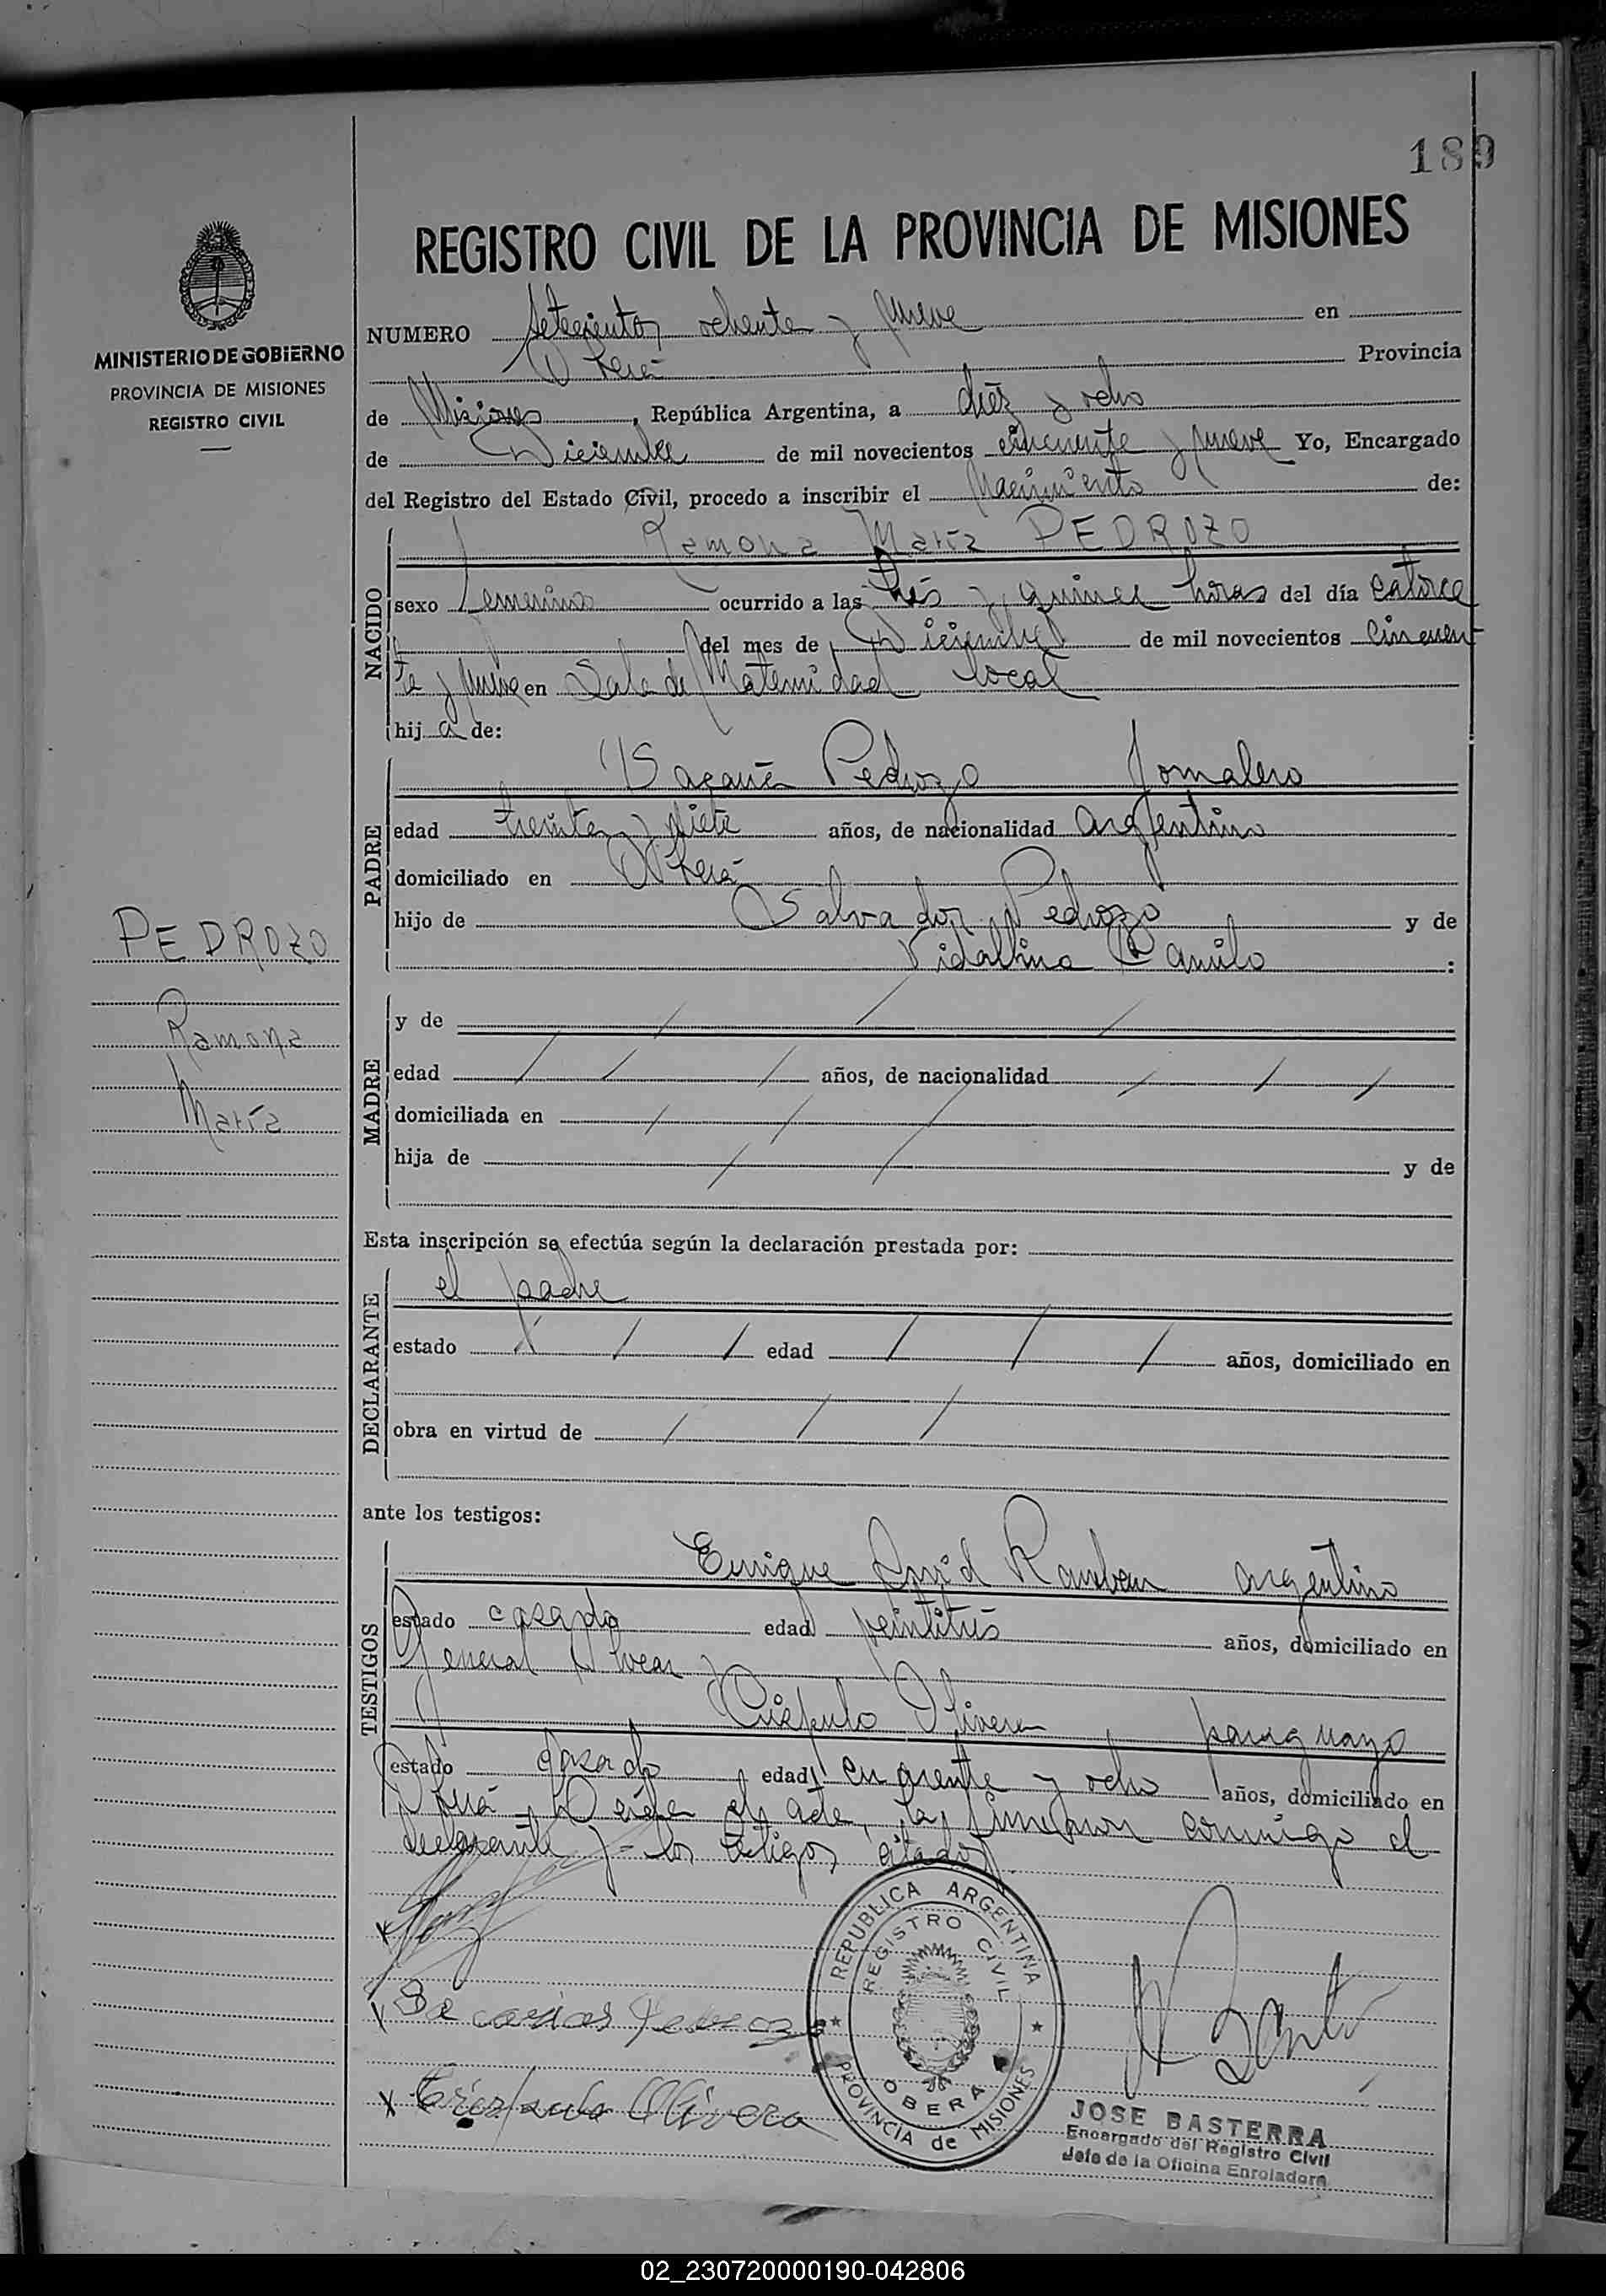 189
REGISTRO CIVIL DE LA PROVINCIA DE MISIONES
MINISTERIO DE GOBIERNO
PROVINCIA DE MISIONES
REGISTRO CIVIL
NUMERO Setecientos ochenta y nueve en
Oberá Provincia
de Misiones, República Argentina, a diez y ocho
de Diciembre de mil novecientos cincuenta y nueve Yo, Encargado
del Registro del Estado Civil, procedo a inscribir el Nacimiento de:
NACIDO
Ramona María PEDROZO
sexo femenino ocurrido a las tres y quince horas del día catorce
del mes de Diciembre de mil novecientos cincuen
ta y nueve en Sala de Maternidad local
hija de:
PADRE
Pedrozo Jornalero
edad treinta y siete años, de nacionalidad argentino
domiciliado en Oberá
hijo de Salvador Pedrozo y de
Vidalbina :
PEDROZO
Ramona
María
MADRE
y de
edad años, de nacionalidad
domiciliada en
hija de y de
Esta inscripción se efectúa según la declaración prestada por:
DECLARANTE
el padre
estado edad años, domiciliado en
obra en virtud de
ante los testigos:
TESTIGOS
Enrique David argentino
estado casado edad veintitrés años, domiciliado en
General Alvear y
Crispulo Olivera paraguayo
estado casado edad cuarenta y ocho años, domiciliado en
Oberá Leída el acta, la firmaron conmigo el
declarante y los testigos citados.
Pedrozo
Olivera
REPUBLICA ARGENTINA
REGISTRO CIVIL
OBERA
PROVINCIA de MISIONES
JOSE BASTERRA
Encargado del Registro Civil
Jefe de la Oficina Enroladora
02_230720000190-042806